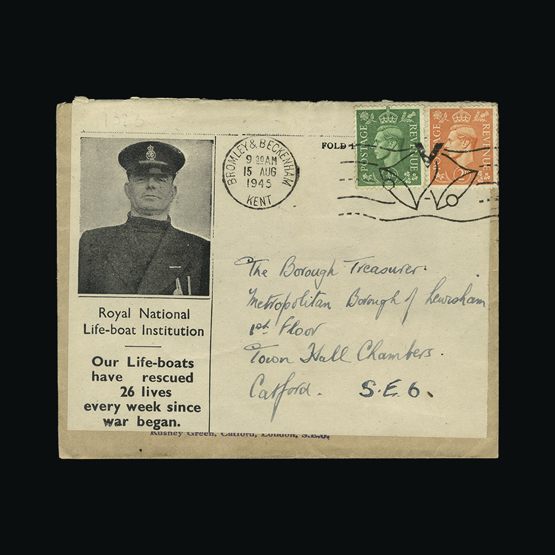 BROMLEY & BECKENHAM
9 30 AM
15 AUG
1945
KENT
FOLD
POSTAGE REVENUE
POSTAGE REVENUE
The Borough Treasurer.
Metropolitan Borough of Lewisham
1st Floor
Town Hall Chambers.
Catford. S.E.6.
Royal National
Life-boat Institution
Our Life-boats
have rescued
26 lives
every week since
war began.
Rushey Green, Catford, London, S.E.6.